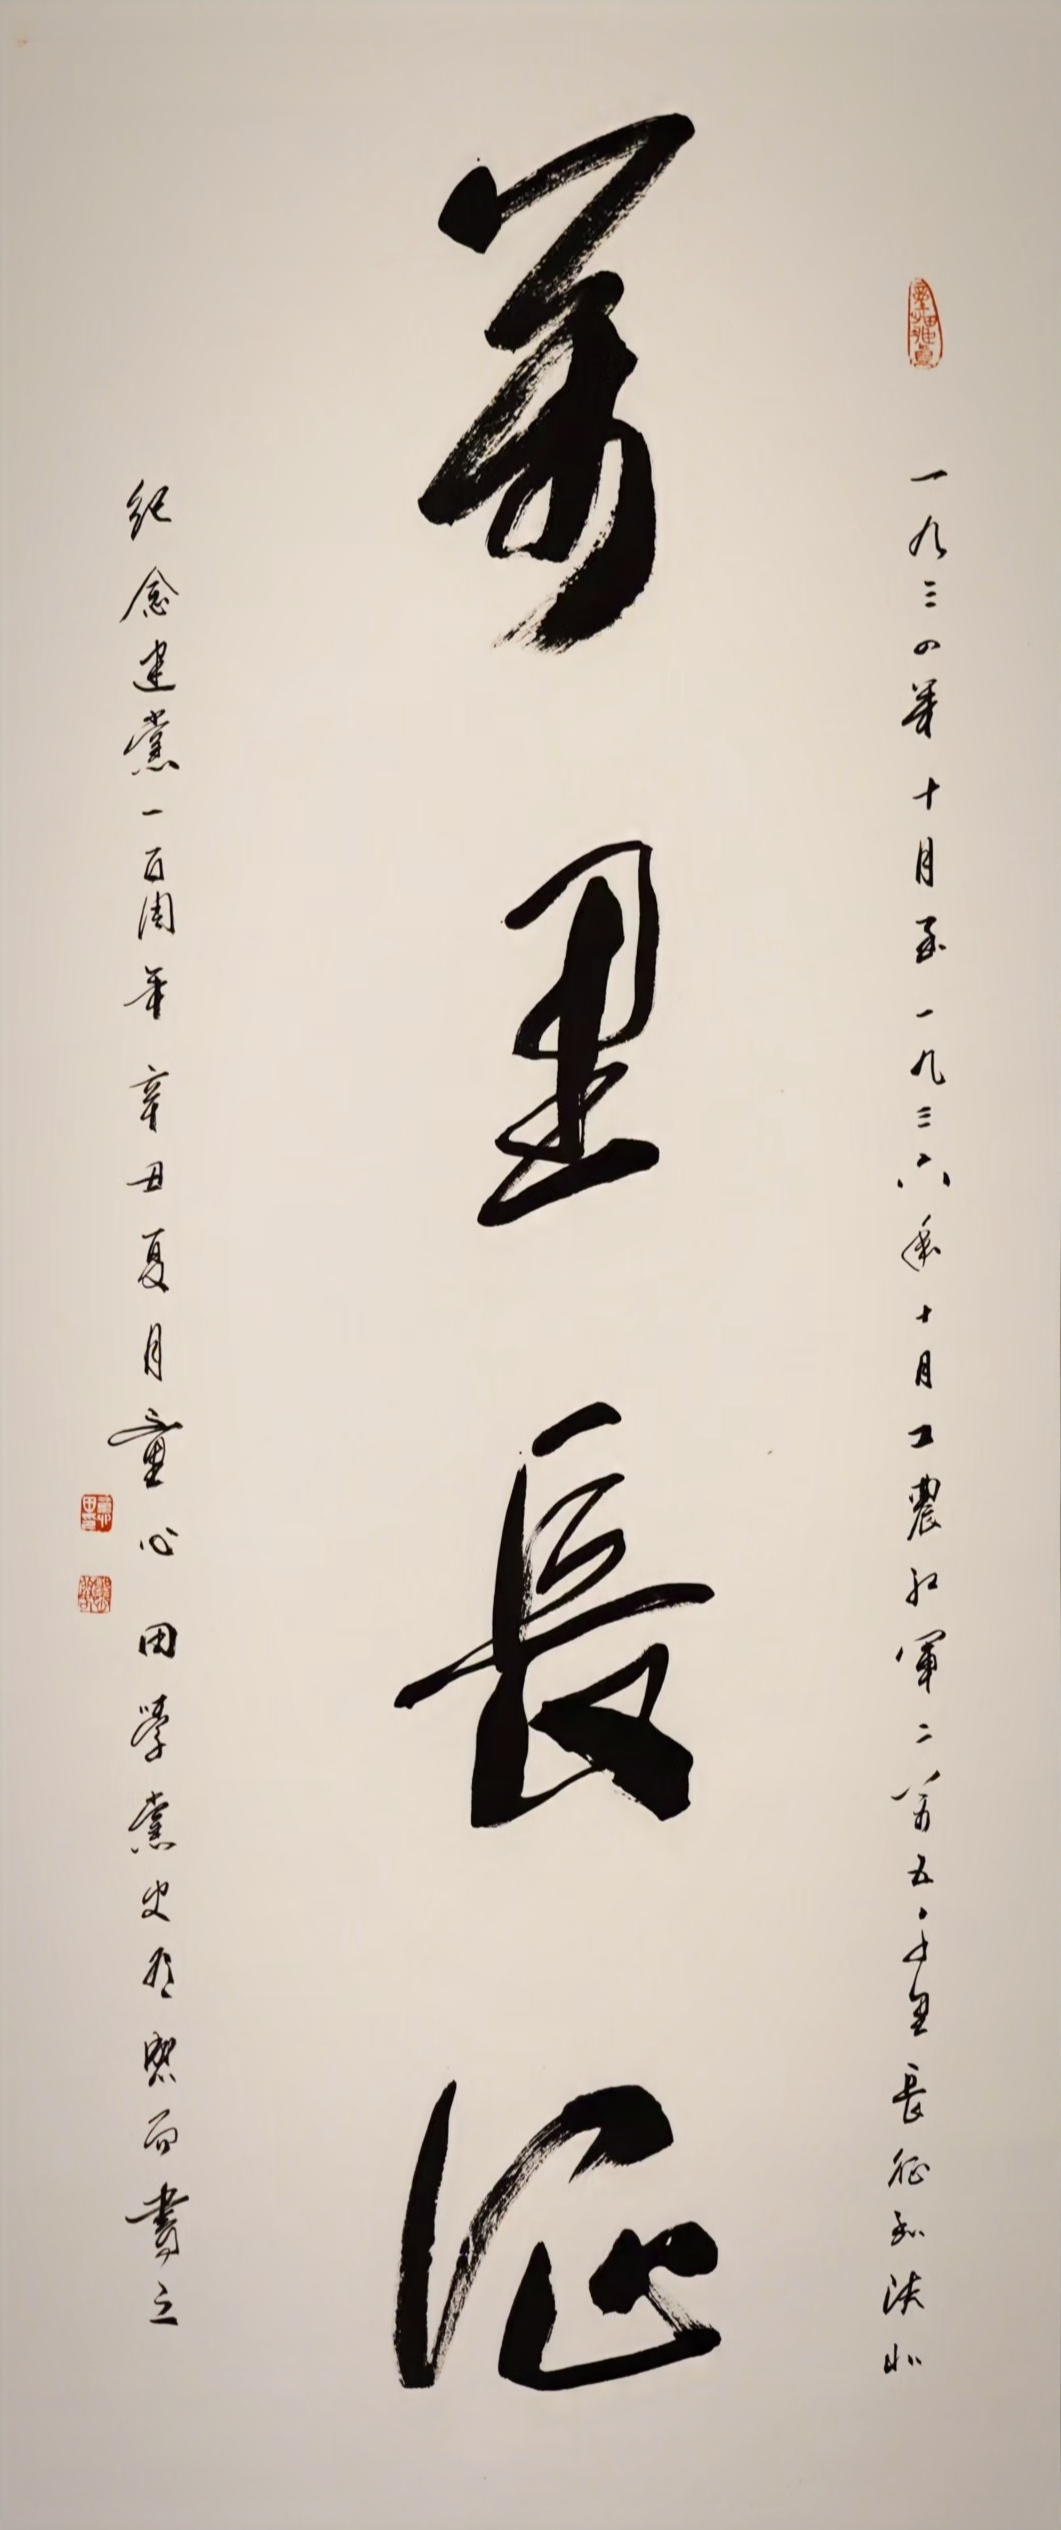 一九三四年十月至一九三六年十月工農紅軍二萬五千里長征到陝北
萬里長征
紀念建黨一百周年辛丑夏月童心田學黨史有感而書之